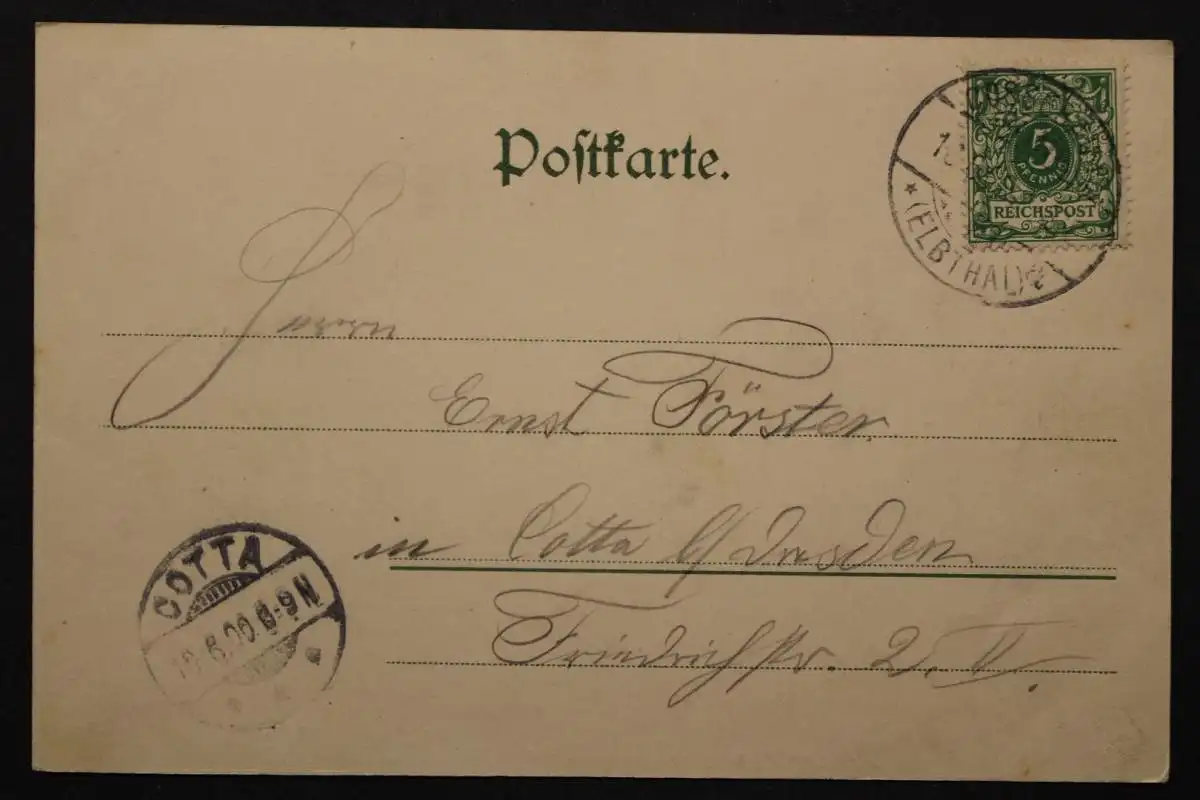 Postkarte.
5
PFENNIG
REICHSPOST
(ELBTHAL)
Herrn
Ernst Förster
in Cotta b/Dresden
Friedrichstr. 2. II.
COTTA
6.00.8-9N